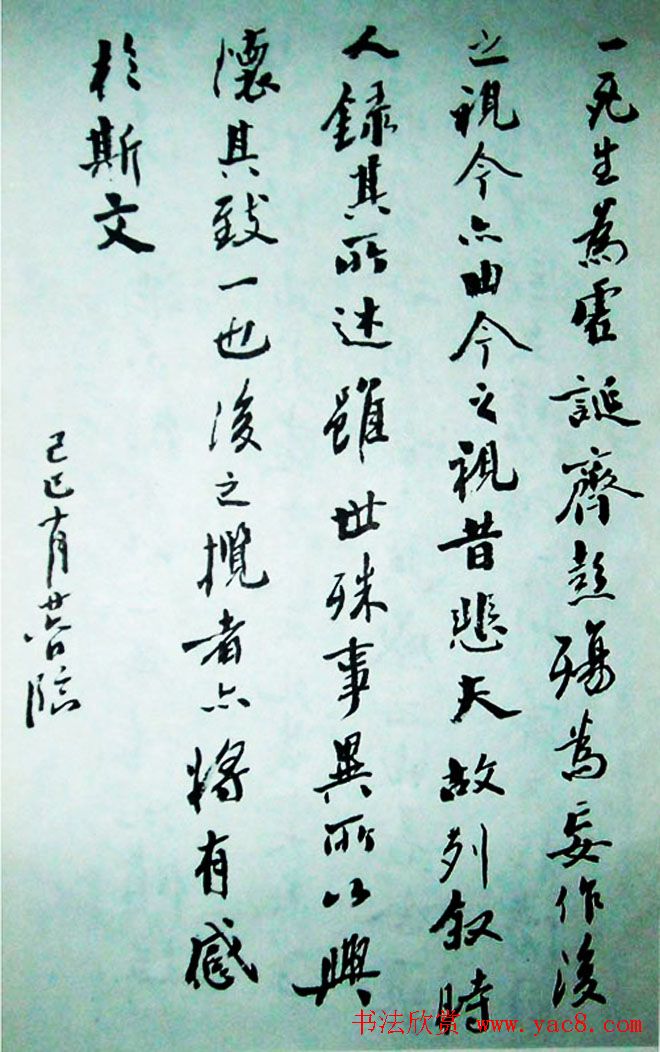 一死生為虛誕齊彭殤為妄作後
之視今亦由今之視昔悲夫故列叙時
人録其所述雖世殊事異所以興
懷其致一也後之攬者亦將有感
於斯文
己巳十月廿八日臨
书法欣赏 www.yac8.com